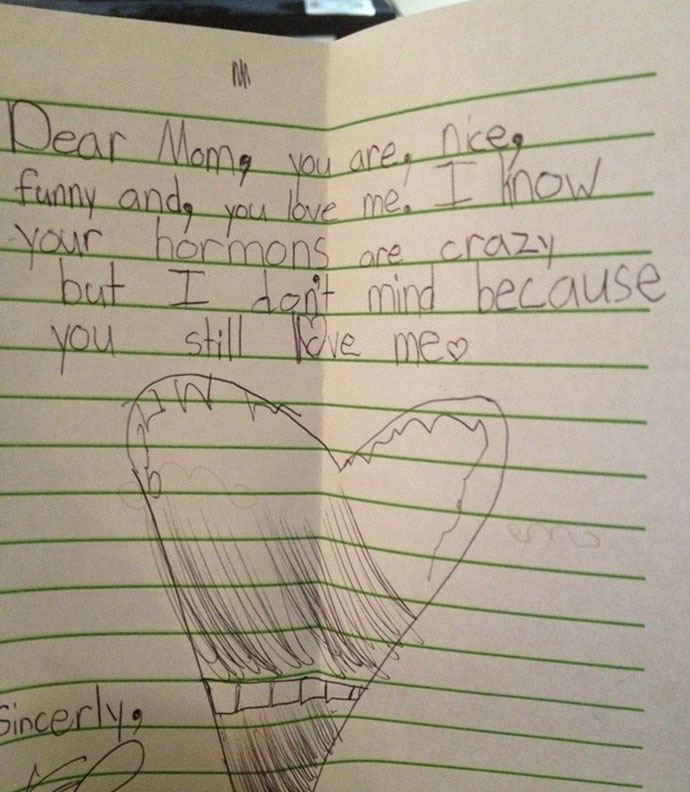 Dear Mom, you are, nice,
funny and, you love me. I know
your hormons are crazy
but I don't mind because
you still love me♡
Sincerly,